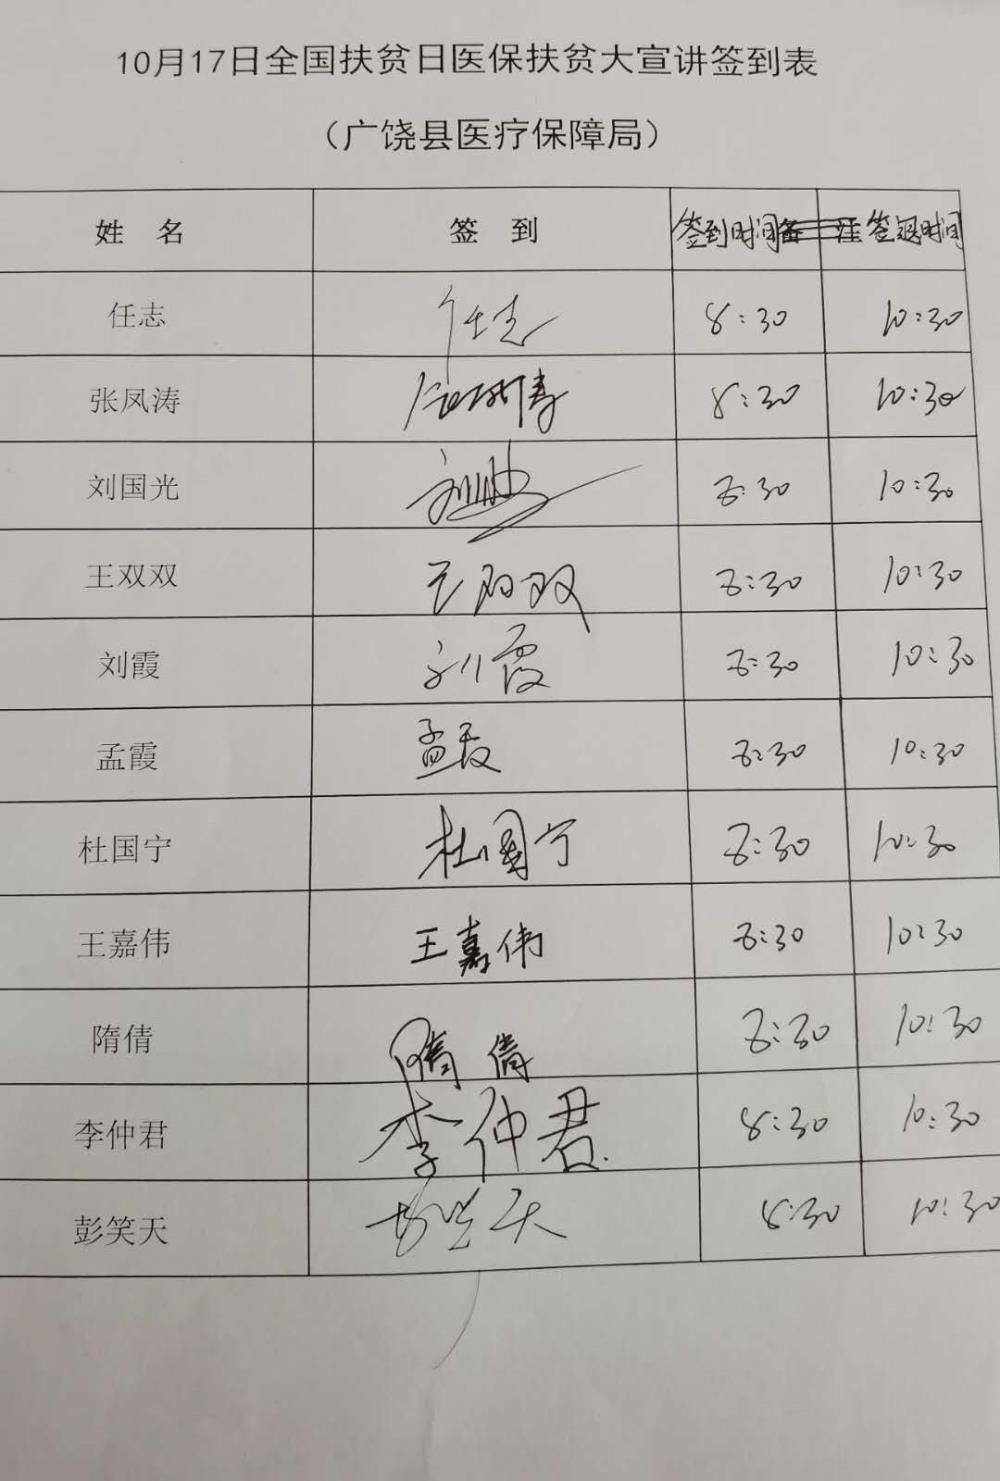 10月17日全国扶贫日医保扶贫大宣讲签到表
（广饶县医疗保障局）
姓 名 签 到 签到时间 备 注 签退时间
任志 任志 8:30 10:30
张凤涛 张凤涛 8:30 10:30
刘国光 8:30 10:30
王双双 王双双 8:30 10:30
刘霞 刘霞 8:30 10:30
孟霞 孟霞 8:30 10:30
杜国宁 杜国宁 8:30 10:30
王嘉伟 王嘉伟 8:30 10:30
隋倩 隋倩 8:30 10:30
李仲君 李仲君 8:30 10:30
彭笑天 彭笑天 8:30 10:30